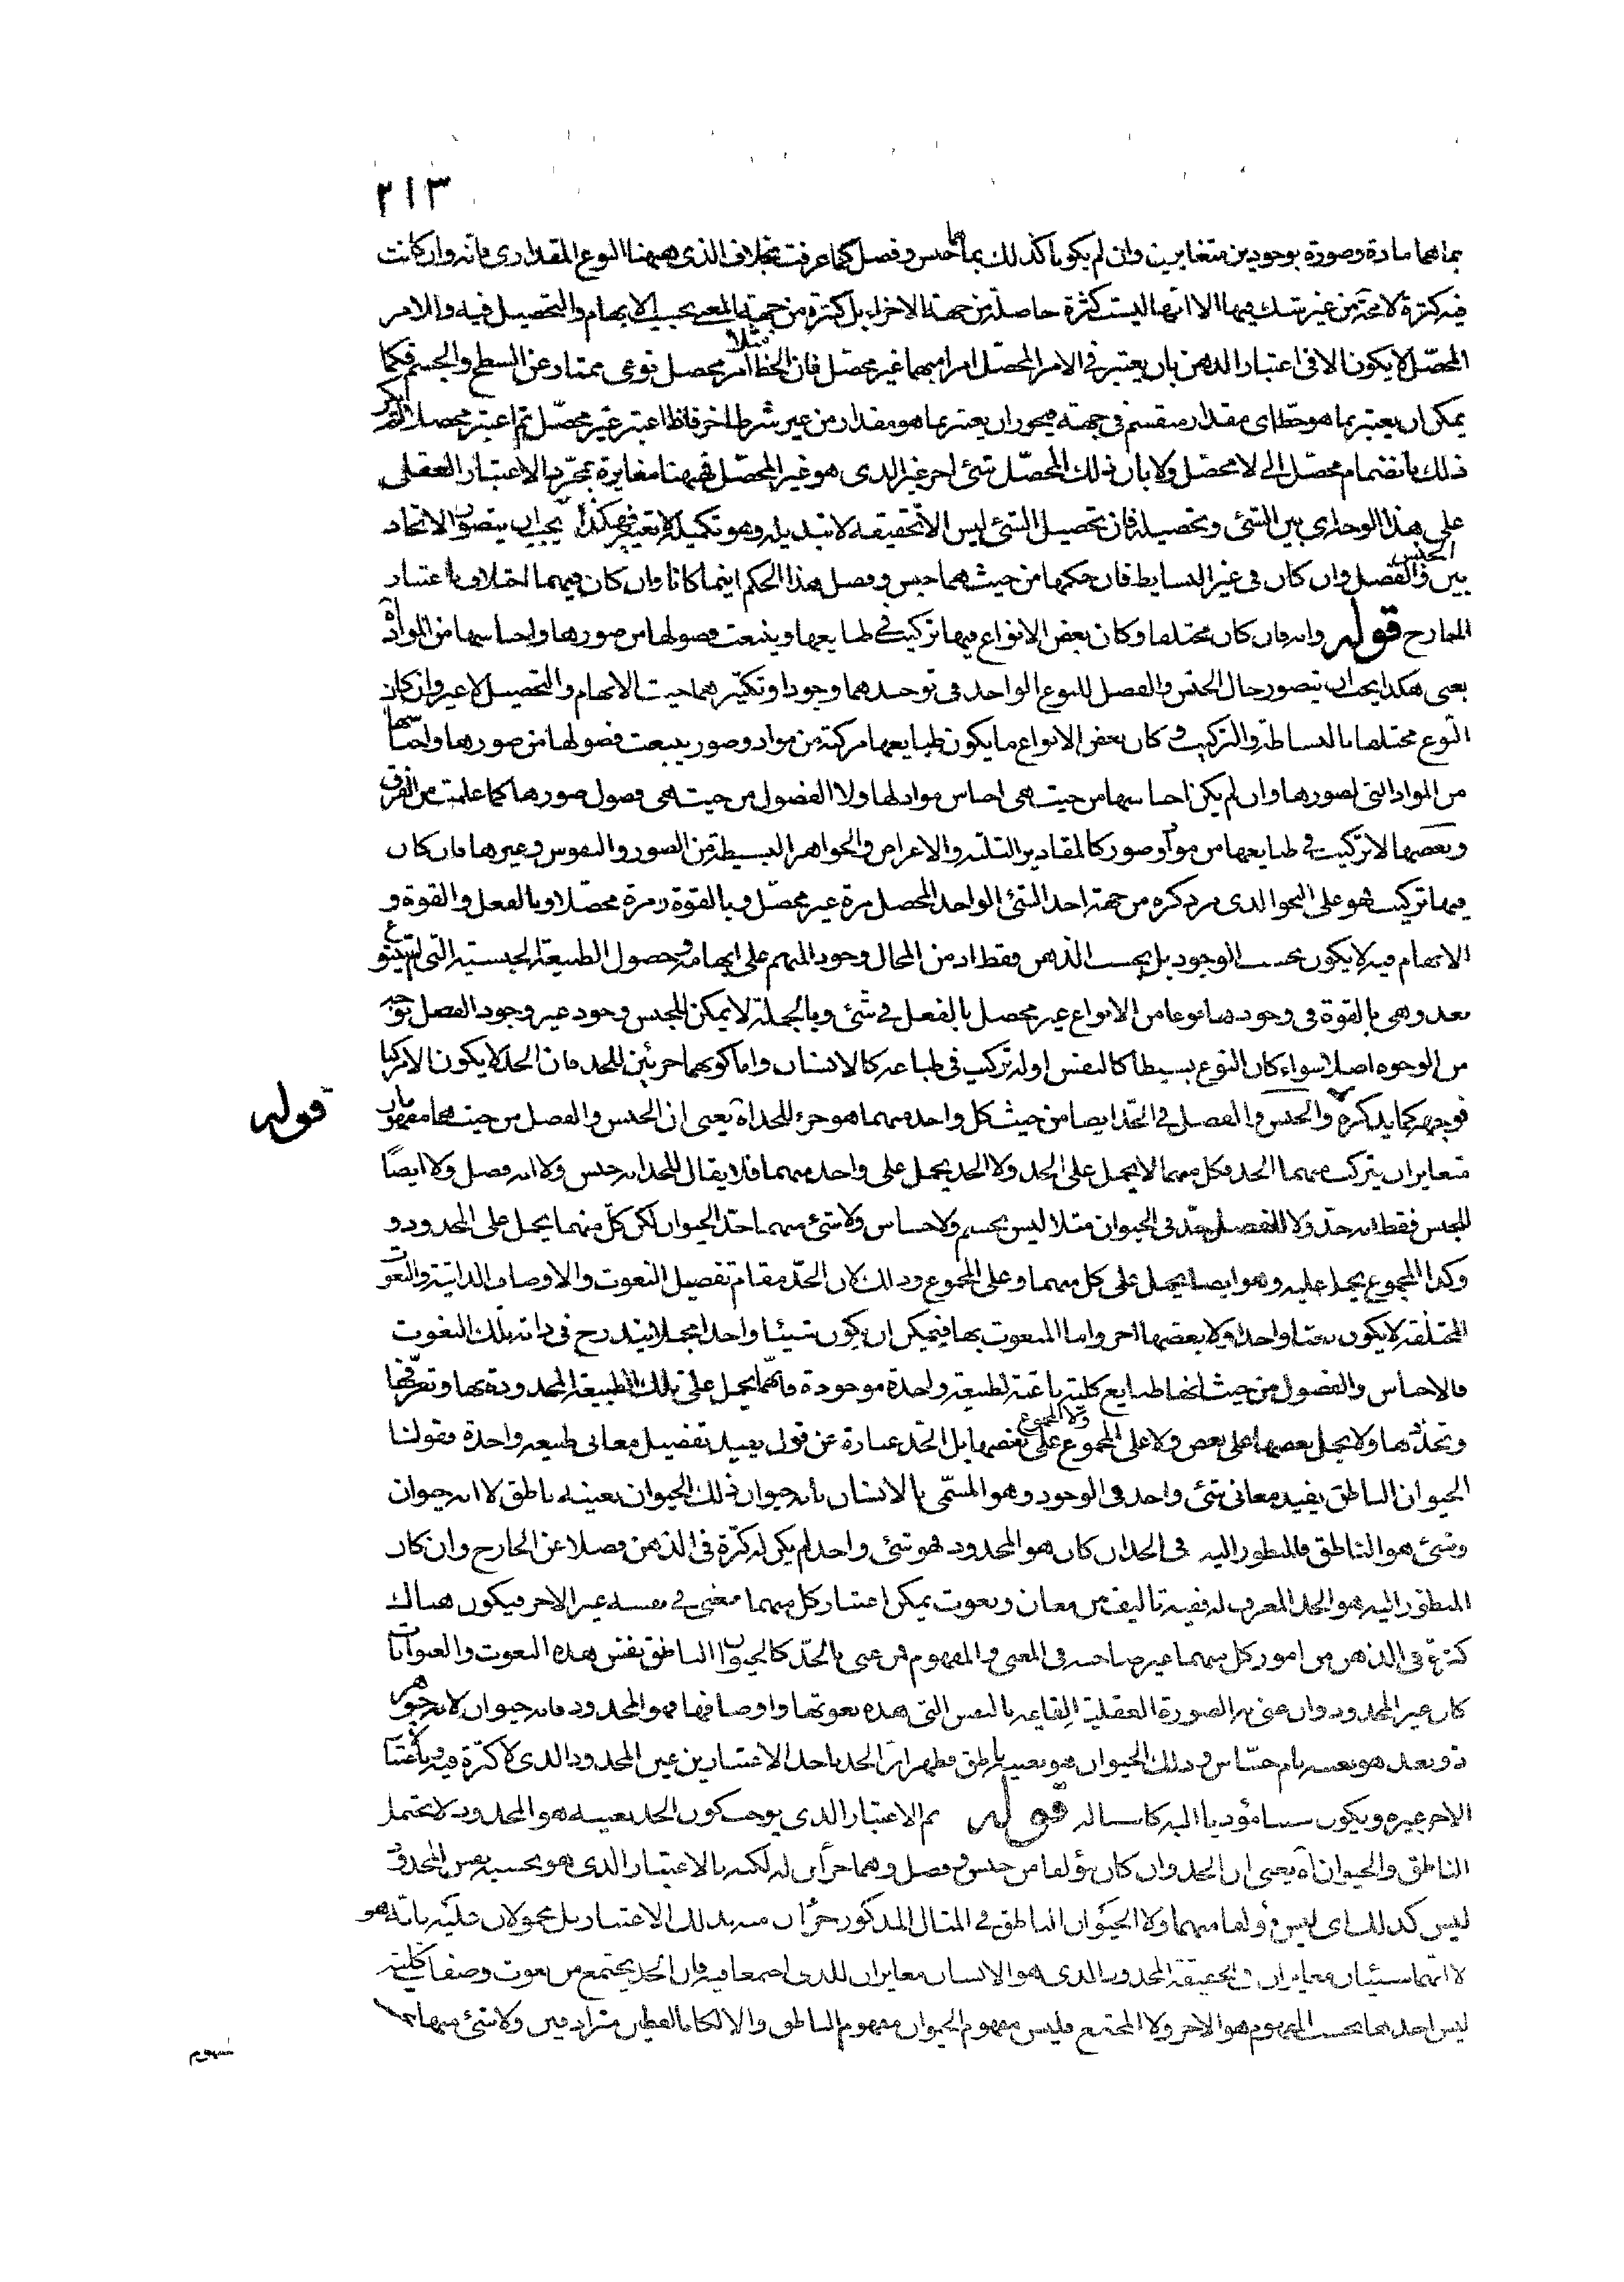 ٢١٣
بما هما مادة وصورة بوجودين متغايرين وان لم يكونا كذلك بما هما جنس وفصل كما عرفت بخلاف الذى هيهنا النوع المقدارى فانه وان كانت
فيه كثرة لا محة من غير شك فيها الا انها ليست كثرة حاصلة من جهة الاجزاء بل كثرة من جهة المعنى بحسب الابهام والتحصيل فيه والامر
المحصّل لا يكون الا فى اعتبار الذهن بان يعتبر فى الامر المحصّل امرا مبهما غير محصّل فان الخط مثلا امر محصل نوعى ممتاز عن السطح والجسم فكما
يمكن ان يعتبر بما هو خطّ اى مقدار منقسم فى جهة فيجوز ان يعتبر بما هو مقدار من غير شرط اخر فاذا اعتبر غير محصّل ثم اعتبر محصلا لم يكن
ذلك بانضمام محصّل الى لا محصّل ولا بان ذلك المحصّل شئ اخر غير الذى هو غير المحصّل فهيهنا مغايرة بمجرّد الاعتبار العقلى
على هذا الوجه الذى بين الشئ وتحصيله فان تحصيل الشئ ليس الا تحقيقه لا تبديله وهو تكميله لا تغييره فهكذا يجب ان يتصور الاتحاد
بين الجنس والفصل وان كان فى غير البسايط فان حكمها من حيث هما جنس وفصل هذا الحكم اينما كانا وان كان فيهما اختلاف باعتبار
الخارج قوله وانه فان كان مختلفا وكان بعض الانواع فيها تركيب فى طبايعها وينبعث فصولها من صورها واجناسها من المواد آه
يعنى هكذا يجب ان يتصور حال الجنس والفصل للنوع الواحد فى توحدهما وجودا وتكثرهما حيث الابهام والتحصيل لا غير وان كان
النوع مختلفا بالبساطة والتركيب وكان بعض الانواع ما يكون طبايعها مركبة من مواد وصور ينبعث فصولها من صورها واجناسها
من المواد التى لصورها وان لم يكن اجناسها من حيث هى اجناس مواد لها ولا الفصول من حيث هى فصول صورها كما علمت من الفرق
وبعضها لا تركيب فى طبايعها من مواد وصور كالمقادير الثلثة والاعراض والجواهر البسيطة من الصور والنفوس وغيرها فان كان
فيها تركيب فهو على النحو الذى مر ذكره من جهة اخذ الشئ الواحد المحصل مرة غير محصّل وبالقوة ومرة محصّلا وبالفعل والقوة و
الابهام فيه لا يكون بحسب الوجود بل بحسب الذهن فقط اذ من المحال وجود المبهم على ابهامه وحصول الطبيعة الجنسية التى لم يتنوع
بعد وهى بالقوة فى وجودها نوعا من الانواع غير محصل بالفعل فى شئ وبالجملة لا يمكن للجنس وجود غير وجود الفصل بوجه
من الوجوه اصلا سواء كان النوع بسيطا كالنفس او له تركيب فى طباعه كالانسان واما كونهما جزئين للحد فان الحد لا يكون الا مركبا
فوجهه كما يذكره قوله والجنس والفصل فى الحدّ ايضا من حيث كل واحد منهما هو جزء للحد آه يعنى ان الجنس والفصل من حيث هما مفهومان
متغايران يتركب منهما الحد فكل منهما لا يحمل على الحد ولا الحد يحمل على واحد منهما فلا يقال للحد انه جنس ولا انه فصل ولا ايضًا
للجنس فقط انه حدّ ولا للفصل حدّ فى الحيوان مثلا ليس بجسم ولا حساس ولا شئ منهما حدّ الحيوان لكن كلّ منهما يحمل على المحدود و
وكذا المجموع يحمل عليه وهو ايضا يحمل على كل منهما وعلى المجموع وذلك لان الحدّ مقام تفصيل النعوت والاوصاف الذاتية والنعوت
المختلفة لا يكون نعتا واحدا ولا بعضها اخر واما المنعوت بها فيمكن ان يكون شيئا واحدا مجملا يندرج فى ذاته تلك النعوت
فالاجناس والفصول من حيث انها طبايع كلية ناعتة لطبيعة واحدة موجودة فانهما يحمل على تلك الطبيعة المحدودة بها وتعرفها
وتحدّها ولا يحمل بعضها على بعض ولا على المجموع ولا المجموع على بعضها بل الحدّ عبارة عن قول يفيد تفصيل معانى طبيعة واحدة فقولنا
الحيوان الناطق يفيد معانى شئ واحد فى الوجود وهو المسمّى بالانسان بانه حيوان ذلك الحيوان بعينه ناطق لا انه حيوان
وشئ هو الناطق فالمنظور اليه فى الحد ان كان هو المحدود فهو شئ واحد لم يكن له كثرة فى الذهن فضلا عن الخارج وان كان
المنظور اليه هو الحد المعرف له ففيه تاليف من معان ونعوت يمكن اعتبار كل منهما معنى فى نفسه غير الاخر فيكون هناك
كثرة فى الذهن من امور كل منهما غير صاحبه فى المعنى والمفهوم فان عنى بالحدّ كالحيوان الناطق نفس هذه النعوت والعنوانات
كان غير المحدود وان عنى به الصورة العقلية القايمة بالنفس التى هذه نعوتها واوصافها فهو المحدود فانه حيوان لانه جوهر
ذو بعد هو بعينه نام حسّاس وذلك الحيوان هو بعينه ناطق فظهر ان الحد باحد الاعتبارين عين المحدود الذى لا كثرة فيه وباعتبار
الاخر غيره ويكون سببا مؤديا اليه كاسبا له قوله ثم الاعتبار الذى يوجب كون الحد بعينه هو المحدود لا يحتمل
الناطق والحيوان آه يعنى ان الحد وان كان مؤلفا من جنس وفصل وهما جزأن له لكنه بالاعتبار الذى هو بحسبه نفس المحدود
ليس كذلك اى ليس مؤلفا منهما ولا الحيوان الناطق فى المثال المذكور جزأن منه بذلك الاعتبار بل محمولان عليه بانه هو
لا انهما شيئان متغايران فى الحقيقة المحدود الذى هو الانسان مغايران للذى اجتمعا فيه وان الحد يجتمع من نعوت وصفات كلية
ليس احدهما بحسب المفهوم هو الاخر ولا المجتمع فليس مفهوم الحيوان مفهوم الناطق والا لكانا لفظين مترادفين ولا شئ منهما
مفهوم